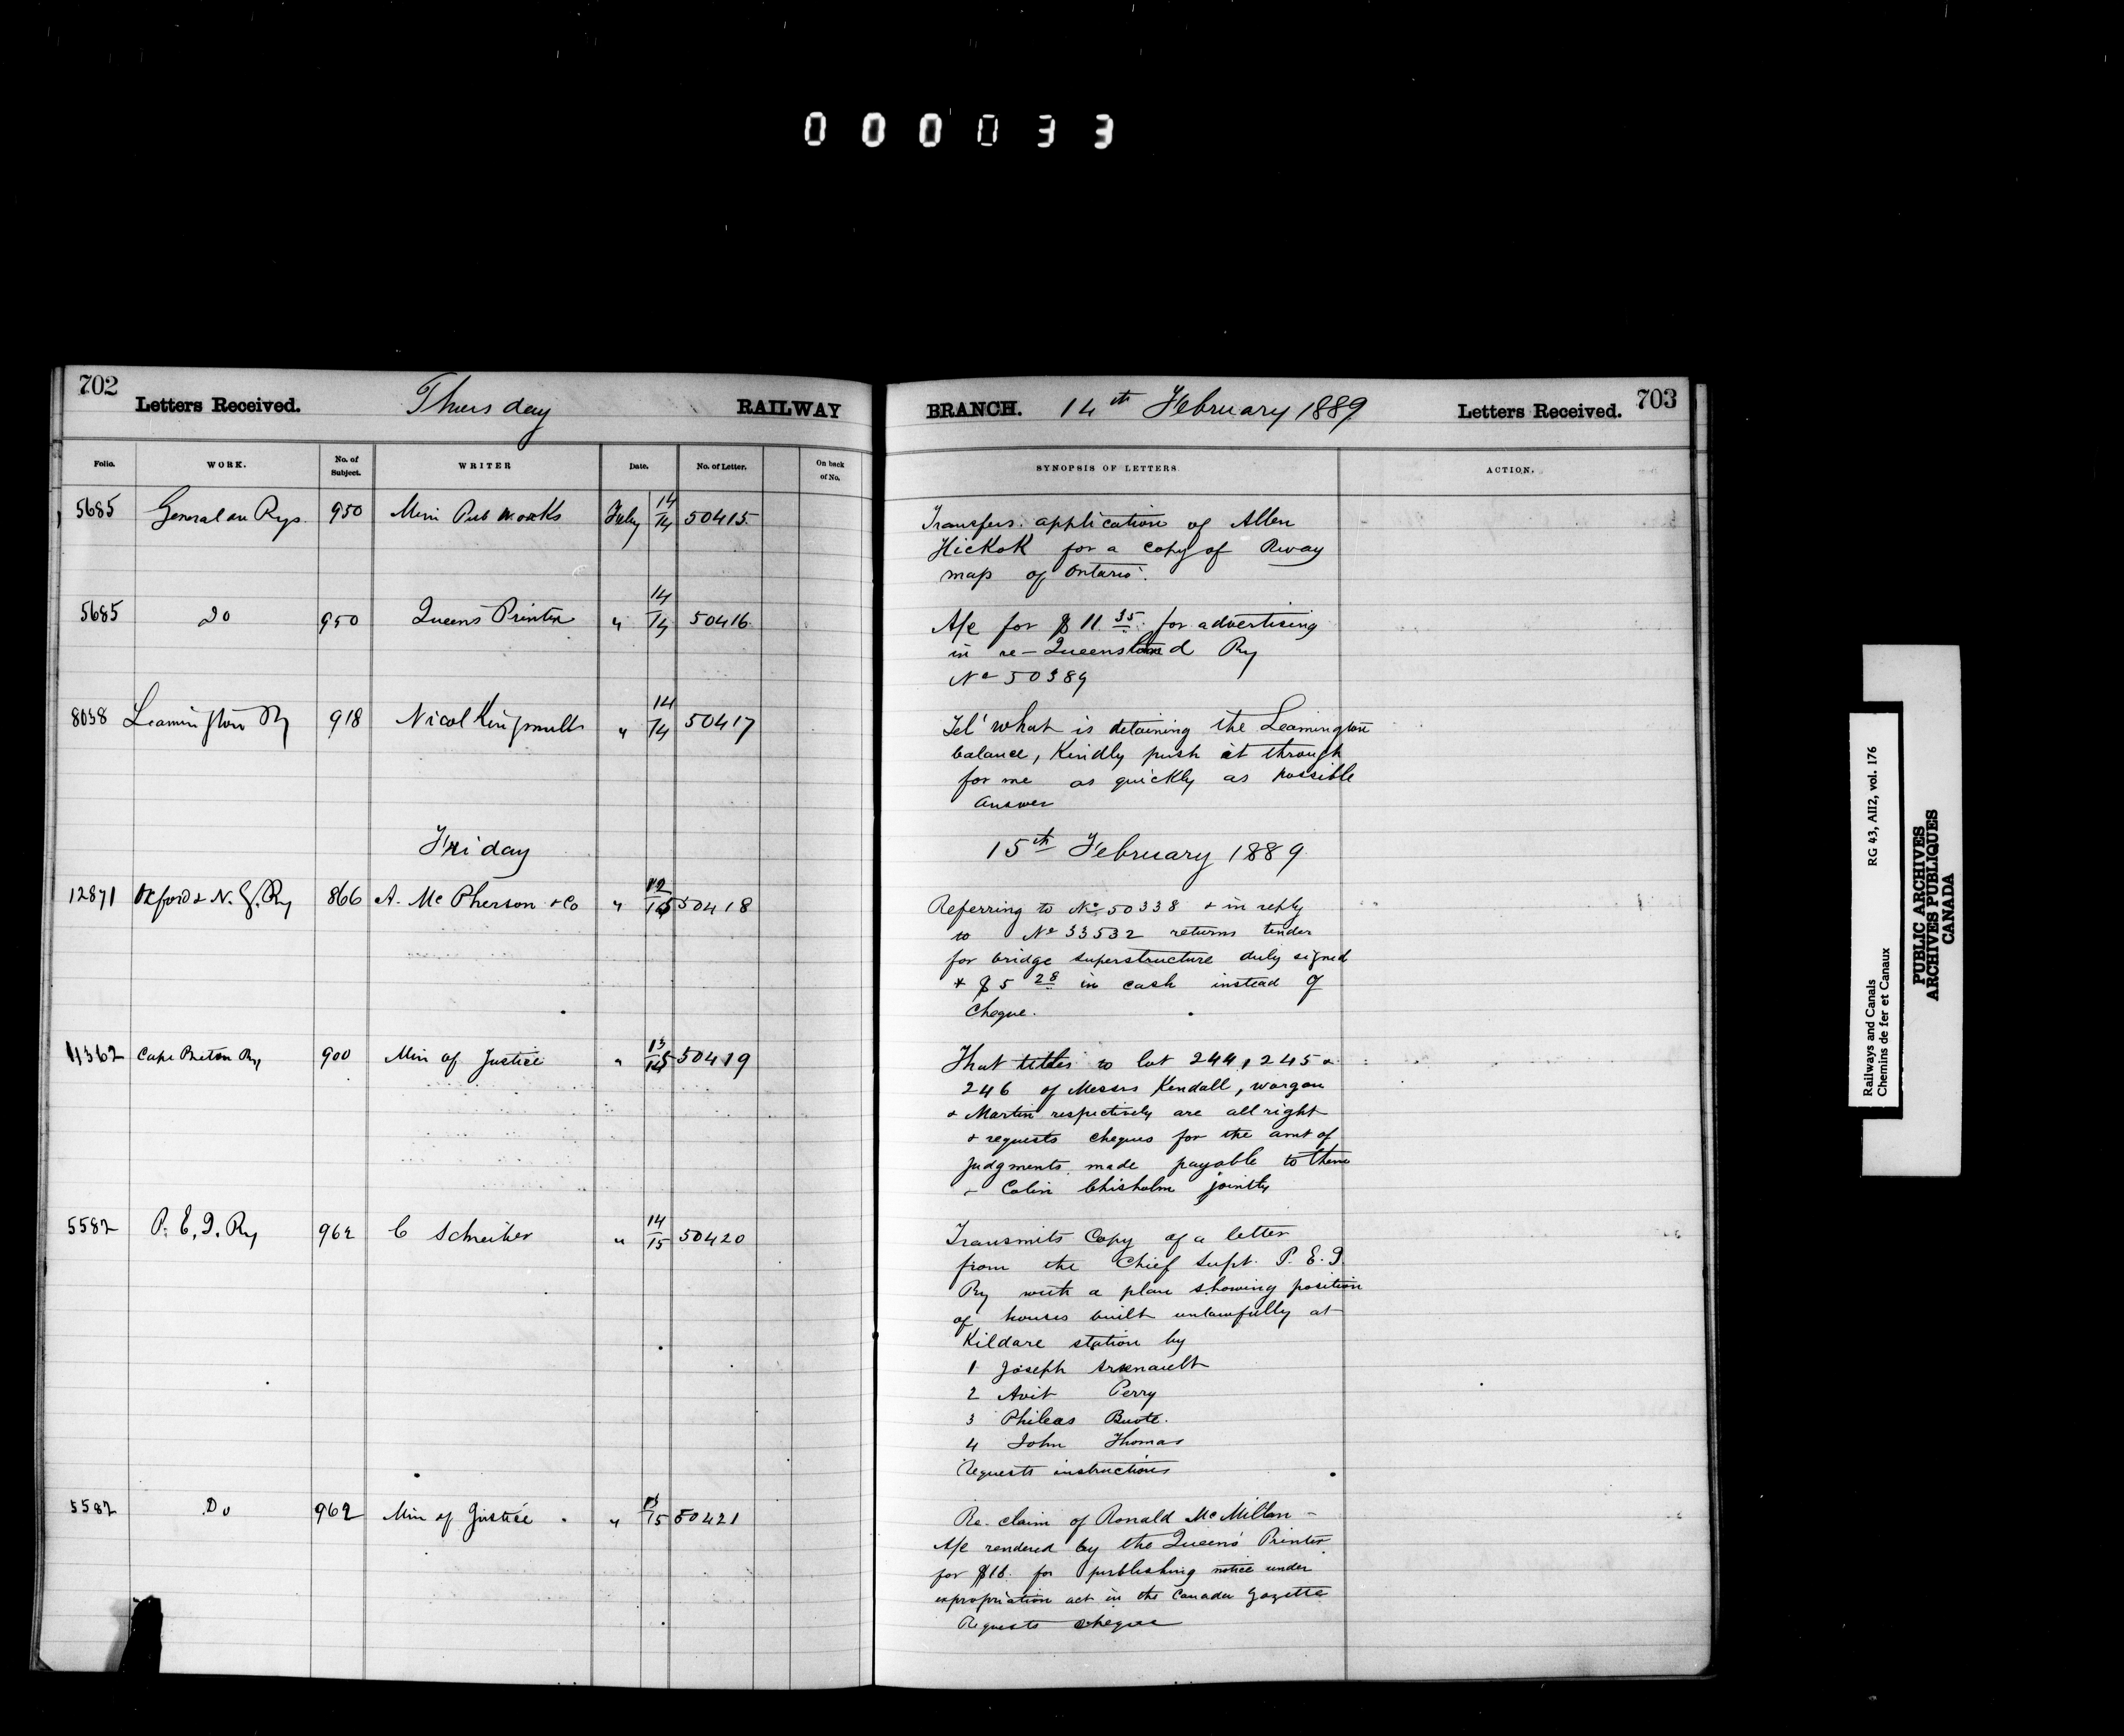 000033
702 Letters Received. Thursday RAILWAY
Folio. WORK. No. of Subject. WRITER Date. No. of Letter. On back of No.
5685 General on Rys. 950 Min Pub Works Feby 14/14 50415
5685 Do 950 Queens Printer " 14/14 50416
8058 Leamington Ry 918 Nicol Kingsmill " 14/14 50417
Friday
12871 Oxford & N. G. Ry 866 A. McPherson & Co " 50418
11362 Cape Breton Ry 900 Min of Justice " 50419
5582 P. E. I. Ry 962 C Schreiber " 14/15 50420
5582 Do 962 Min of Justice " 13/15 50421
BRANCH. 14th February 1889 Letters Received. 703
SYNOPSIS OF LETTERS ACTION.
Transfers application of Allen
Hickok for a copy of Rway
map of Ontario.
A/c for $11.35 for advertising
in re - Queens Ry
No 50389
Tel' what is detaining the Leamington
balance, Kindly push it through
for me as quickly as possible
answer
15th February 1889
Referring to No 50338 & in reply
to No 33532 returns tender
for bridge superstructure duly signed
& $5 28 in cash instead of
Cheque.
That titles to lot 244, 245 &
246 of Messrs Kendall, Worgan
& Martin respectively are all right
& requests cheques for the amt of
judgments made payable to them
& Colin Chisholm jointly
Transmits Copy of a letter
from the Chief Supt. P. E. I.
Ry with a plan showing position
of houses built unlawfully at
Kildare station by
1 Joseph Arsenault
2 Avit Perry
3 Phileas Buote.
4 John Thomas
Requests instructions
Re. claim of Ronald McMillan -
A/c rendered by the Queens' Printer
for $18. for publishing notice under
expropriation act in the Canada Gazette
Requests cheque
Railways and Canals RG 43, AII2, vol. 176
Chemins de fer et Canaux
PUBLIC ARCHIVES
ARCHIVES PUBLIQUES
CANADA